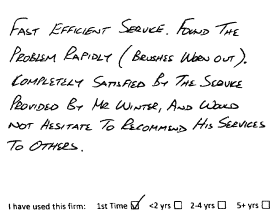 Fast Efficient Service. Found The
Problem Rapidly (Brushes Worn out).
Completely Satisfied By The Service
Provided By Mr Winter, And Would
not Hesitate To Recommend His Services
To Others.
I have used this firm: 1st Time ☑ <2 yrs ☐ 2-4 yrs ☐ 5+ yrs ☐